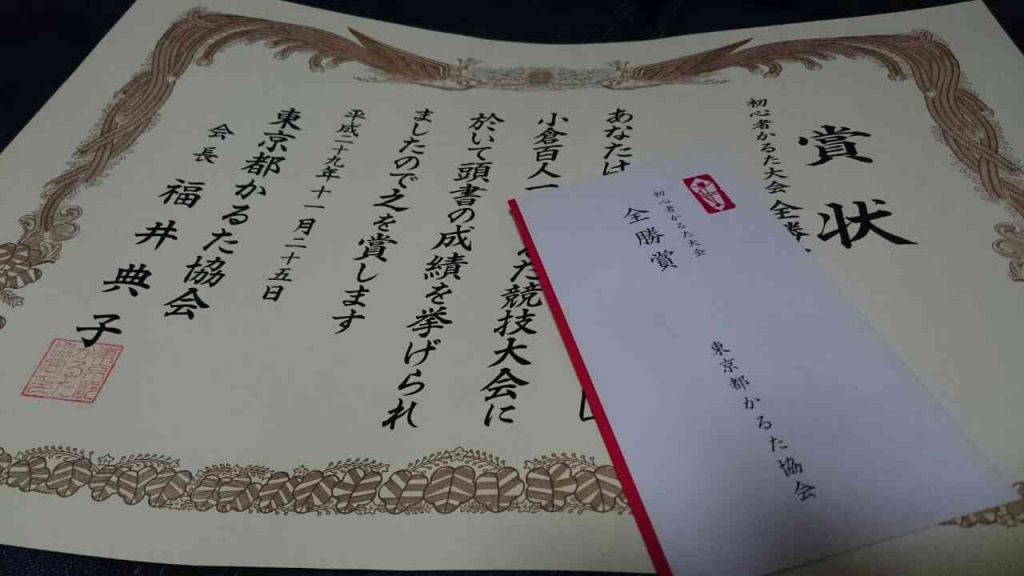 賞状
初心者かるた大会 全勝
あなたは
小倉百人一 た競技大会に
於いて頭書の成績を挙げられ
ましたので之を賞します
平成二十九年十一月二十五日
東京都かるた協会
会長 福井典子
初心者かるた大会
全勝賞
東京都かるた協会